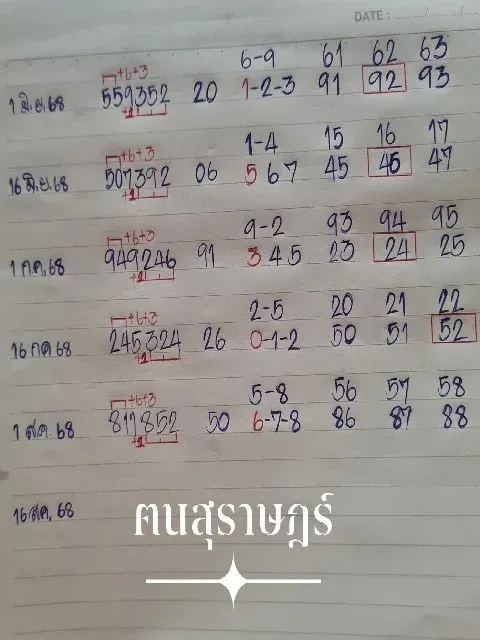 DATE :
6-9 61 62 63
+6+3
1 มิ.ย.68 559352 20 1-2-3 91 92 93
+1
1-4 15 16 17
+6+3
16 มิ.ย.68 507392 06 5 6 7 45 46 47
+1
9-2 93 94 95
+6+3
1 กค.68 949246 91 3 4 5 23 24 25
+1
2-5 20 21 22
+6+3
16 กค 68 245324 26 0-1-2 50 51 52
+1
5-8 56 57 58
+6+3
1 ส.ค. 68 811852 50 6-7-8 86 87 88
+1
16 ส.ค. 68
ฅนสุราษฎร์